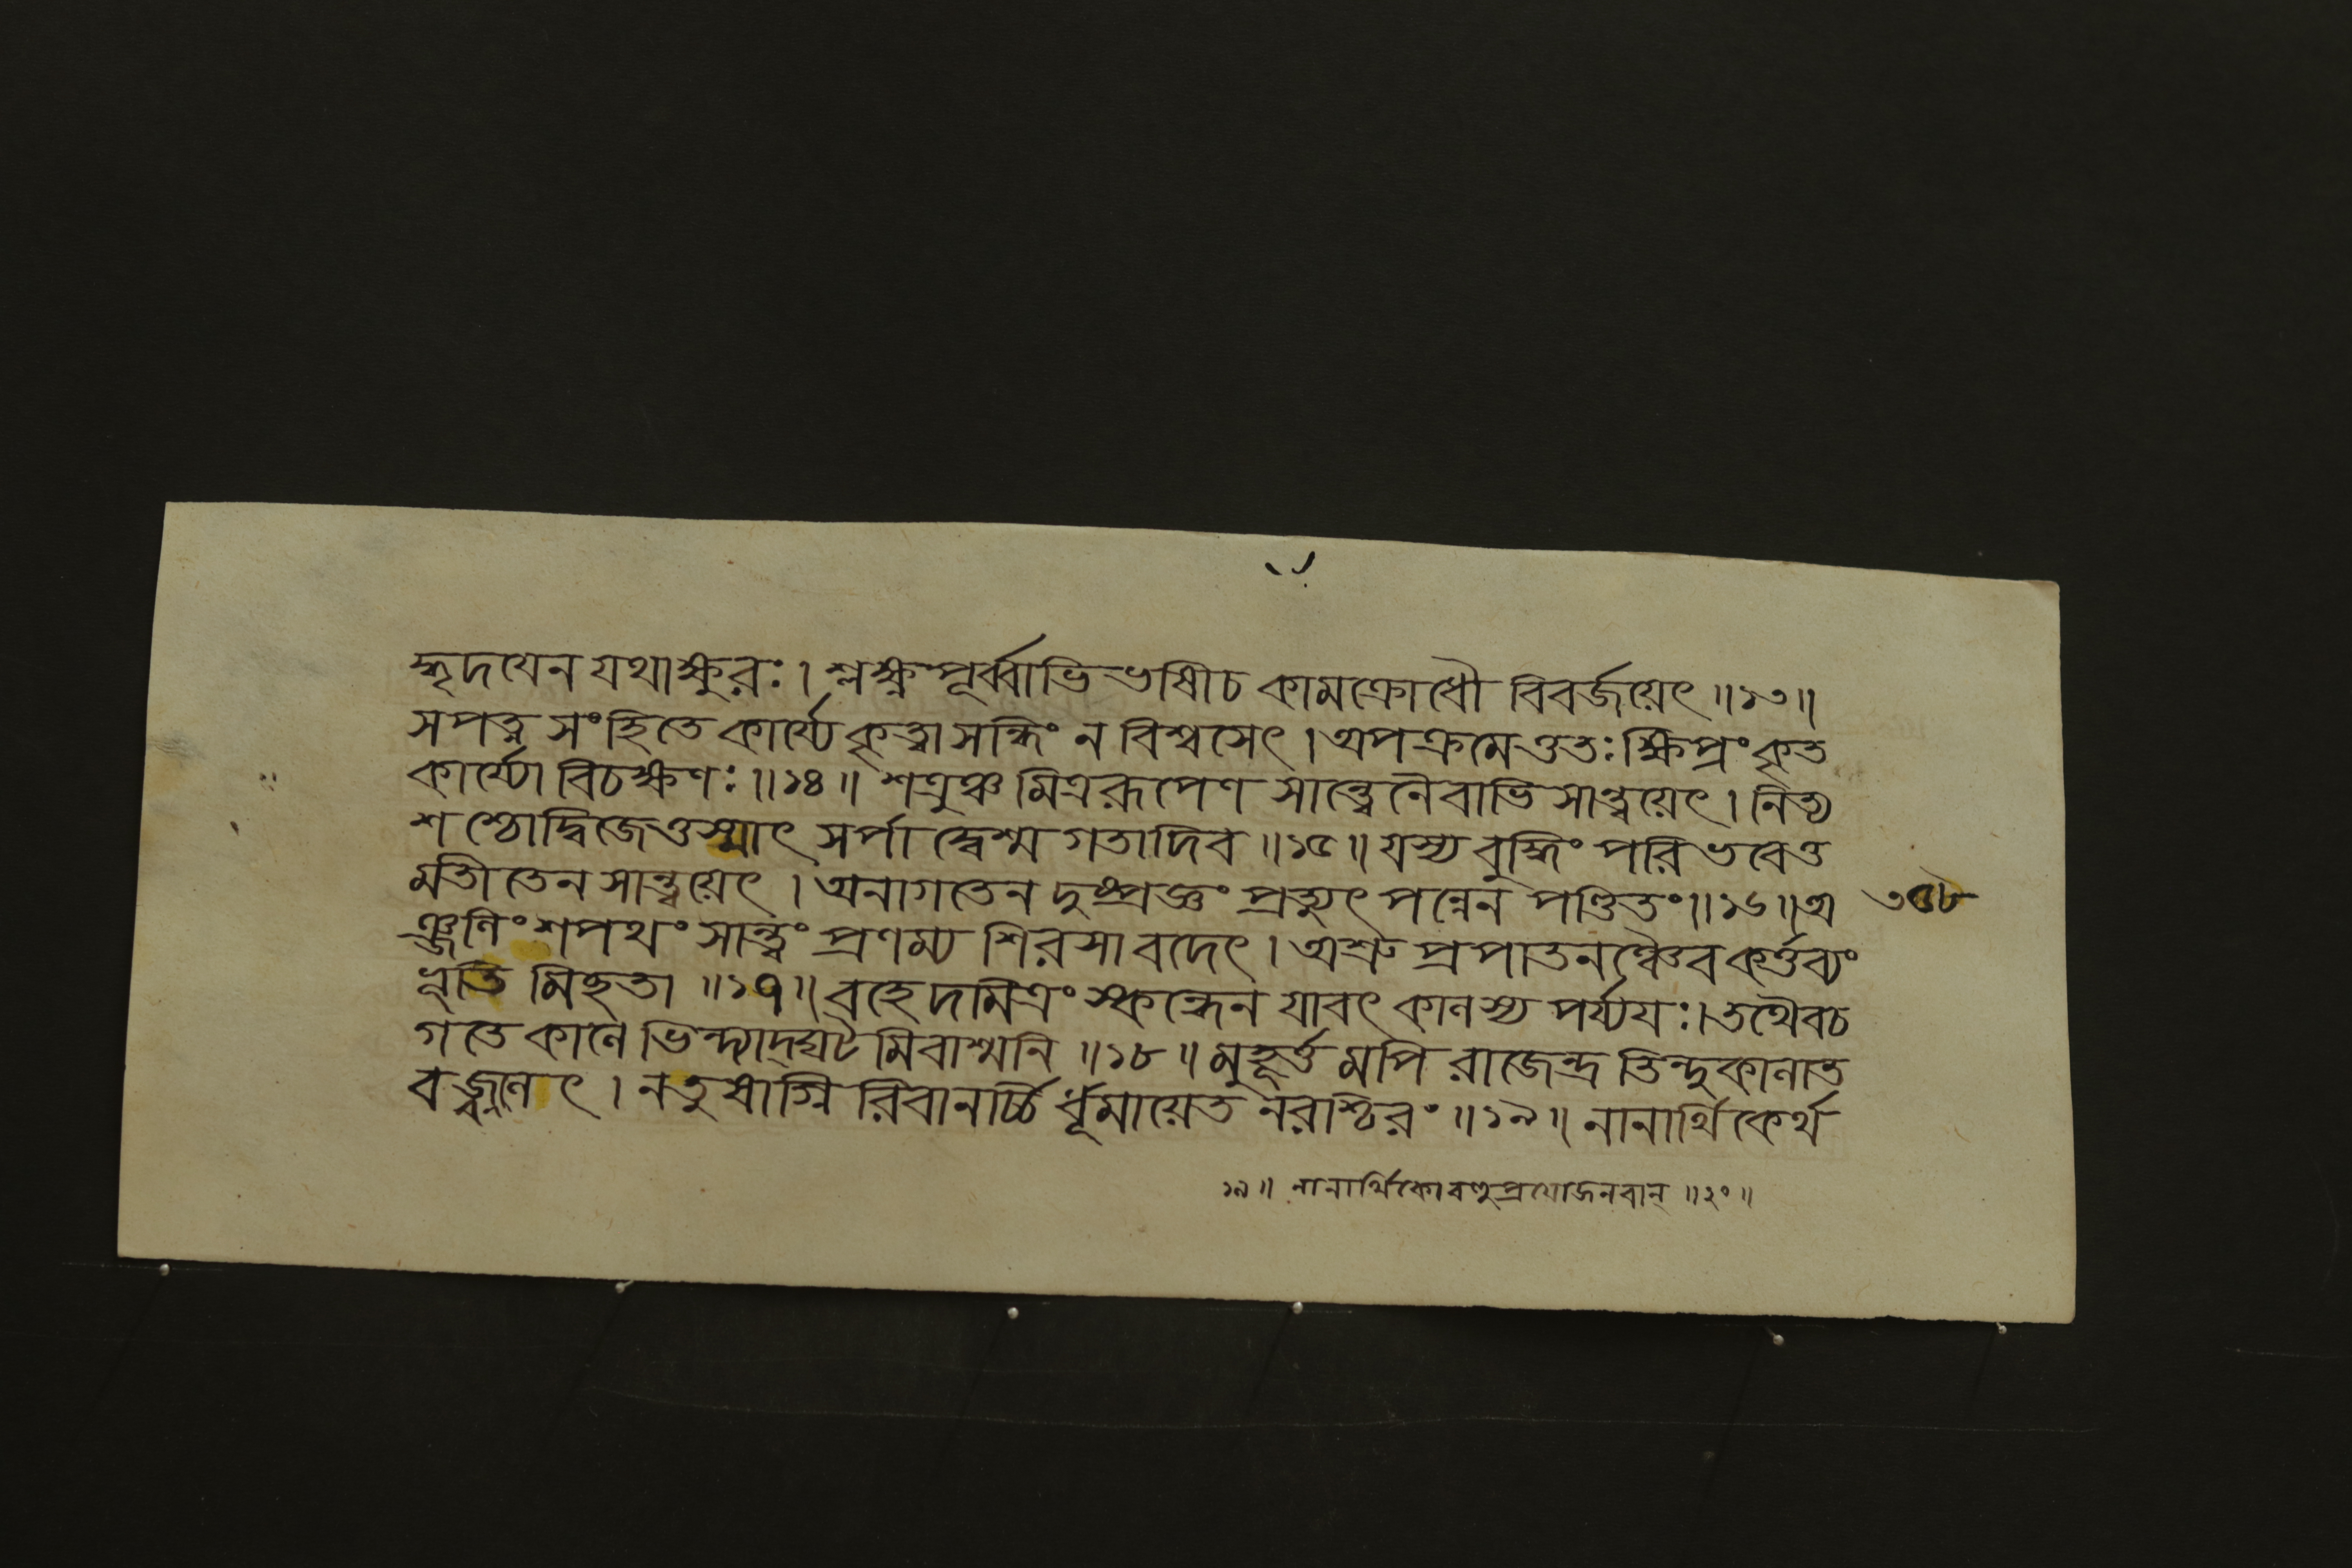 হৃদযেন যথাক্ষুরঃ। শ্লক্ষ্ণপূর্ব্বাভিভাষীচ কামক্রোধৌ বিবর্জয়েৎ॥১৩॥
সপত্ন সংহিতে কার্য্যে কৃত্বাসন্ধিং ন বিশ্বসেৎ। অপক্রমেত্ততঃ ক্ষিপ্রং কৃত
কার্য্যো বিচক্ষণঃ॥১৪॥ শত্রুঞ্চ মিত্ররূপেণ সান্ত্বেনৈবাভি সান্ত্বয়েৎ। নিত্য
শশ্চোদ্বিজেত্তস্মাৎ সর্পাদ্বেশ্মগতাদিব॥১৫॥ যস্য বুদ্ধিং পরিভবেত্ত
মতীতেন সান্ত্বয়েৎ। অনাগতেন দুষ্প্রজ্ঞং প্রত্যুৎপন্নেন পণ্ডিতং॥১৬॥ অ
৩৫৮
ঞ্জলিং শপথং সান্ত্বং প্রণম্য শিরসাবদেৎ। অশ্রুপ্রপাতনঞ্চৈব কর্ত্তব্যং
ভূতিমিছতা॥১৭॥ বহেদমিত্রং স্কন্ধেন যাবৎ কালস্য পর্য্যযঃ। তথৈবচ
গতে কালে ভিন্দ্যাদ্ঘটমিবাশ্মনি॥১৮॥ মুহূর্ত্তমপি রাজেন্দ্র তিন্দুকালাত
বজ্জ্বলেৎ। নতুষাগ্নিরিবানর্চ্চির্ধূমায়েত নরশ্চিরং॥১৯॥ নানার্থিকের্থ
১৯॥ নানার্থিকোবহুপ্রযোজনবান্॥২০॥